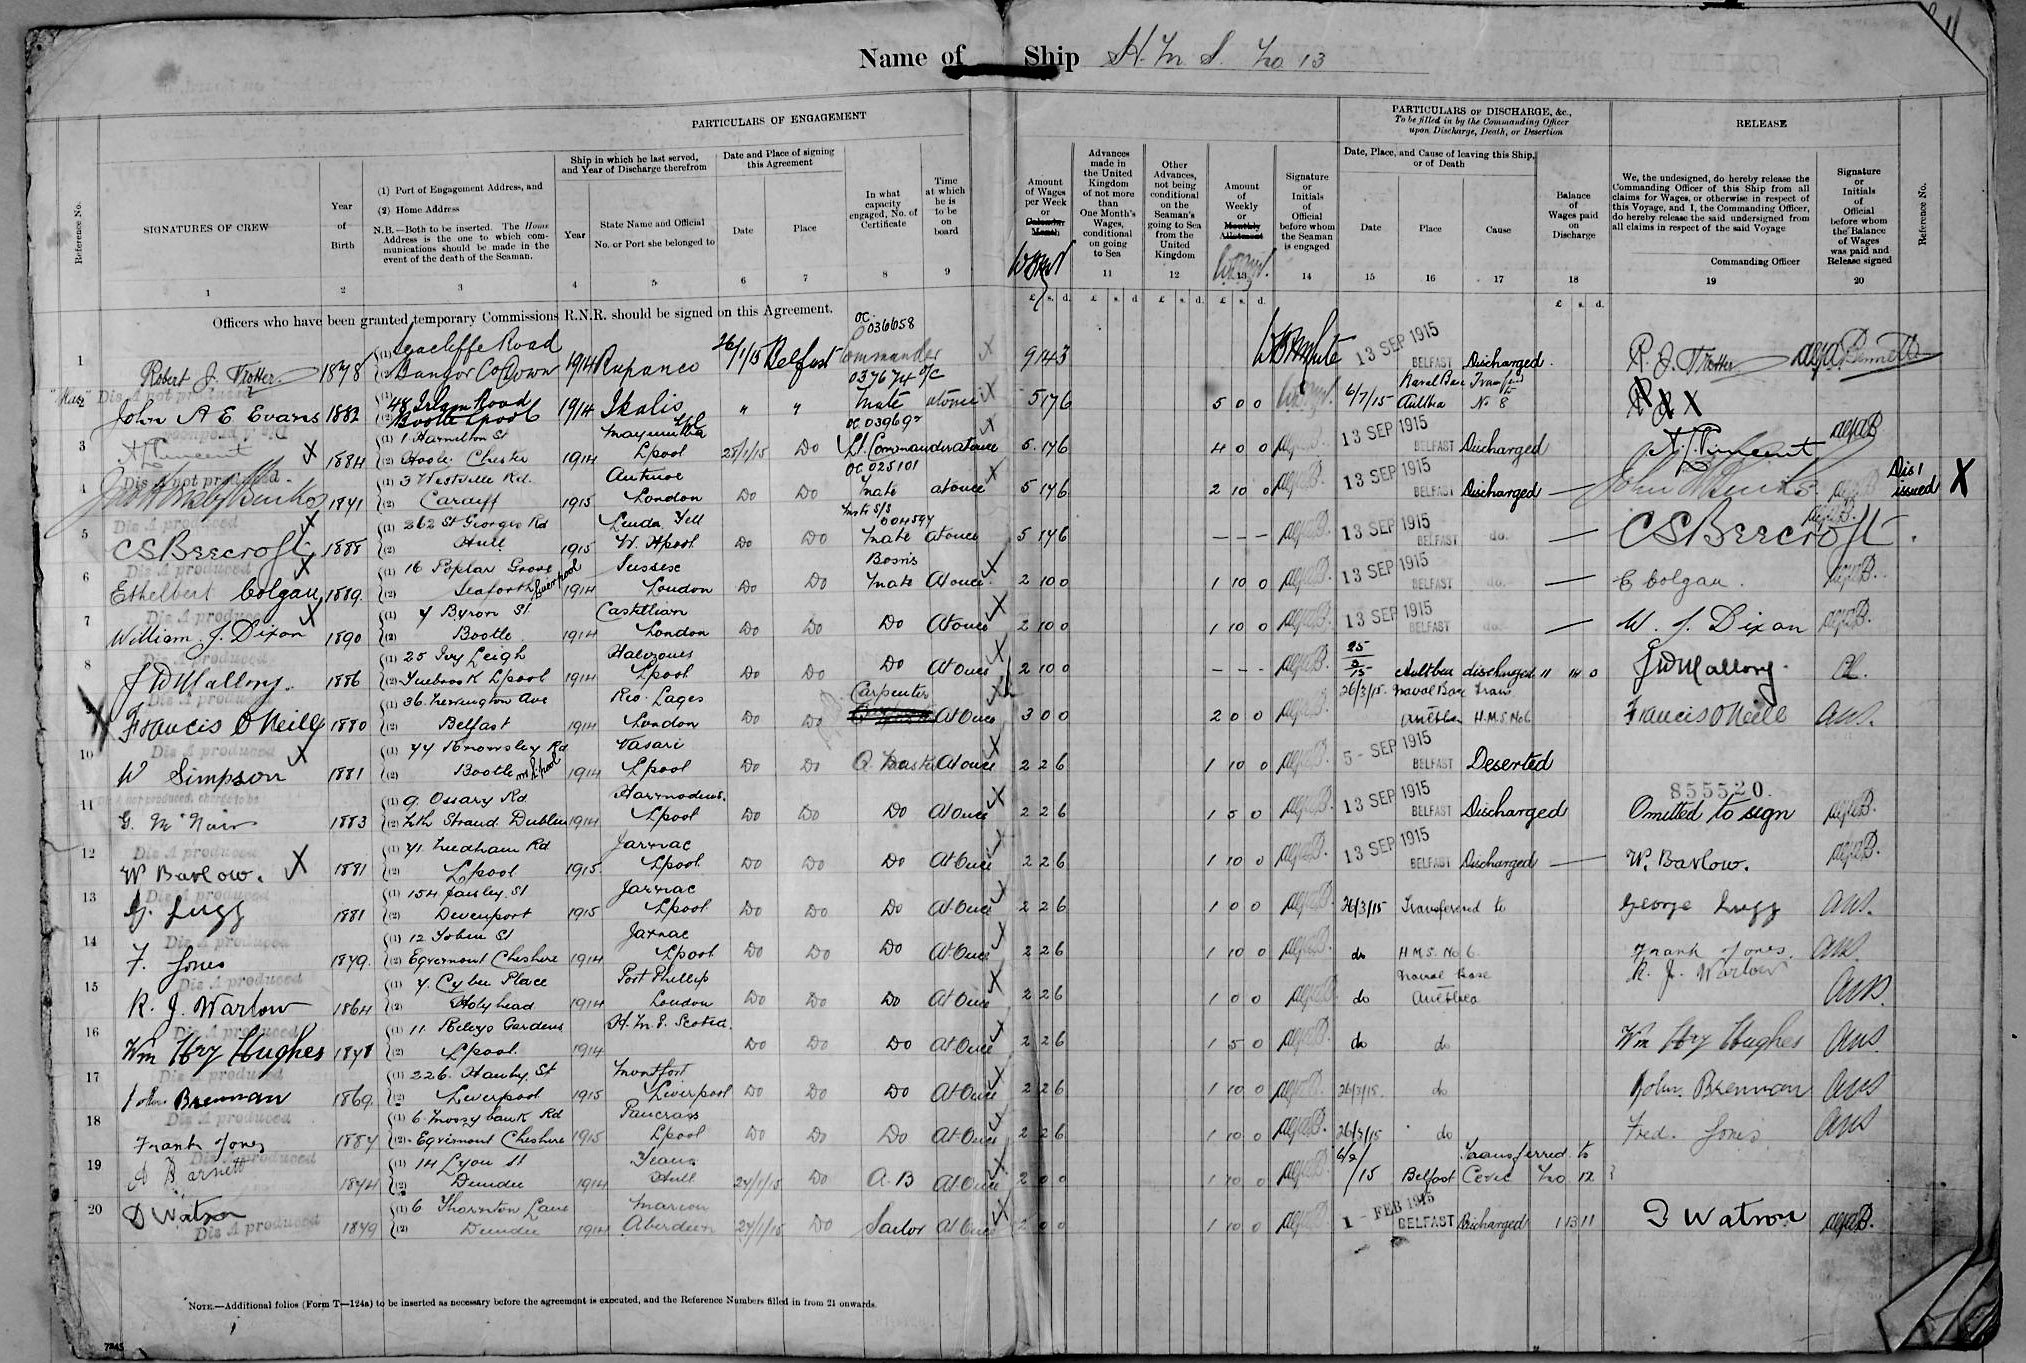 Name of Ship H.M.S. No 13
PARTICULARS OF ENGAGEMENT
PARTICULARS OF DISCHARGE, &c.,
To be filled in by the Commanding Officer
upon Discharge, Death, or Desertion
RELEASE
Reference No.
SIGNATURES OF CREW
1
Year
of
Birth
2
(1) Port of Engagement Address, and
(2) Home Address
N.B.—Both to be inserted. The Home
Address is the one to which com-
munications should be made in the
event of the death of the Seaman.
3
Ship in which he last served,
and Year of Discharge therefrom
Year
4
State Name and Official
No. or Port she belonged to
5
Date and Place of signing
this Agreement
Date
6
Place
7
In what
capacity
engaged, No. of
Certificate
8
Time
at which
he is
to be
on
board
9
Amount
of Wages
per Week
or
Calendar
Month
Advances
made in
the United
Kingdom
of not more
than
One Month's
Wages,
conditional
on going
to Sea
11
Other
Advances,
not being
conditional
on the
Seaman's
going to Sea
from the
United
Kingdom
12
Amount
of
Weekly
or
Monthly
Allotment
13
Signature
or
Initials
of
Official
before whom
the Seaman
is engaged
14
Date, Place, and Cause of leaving this Ship,
or of Death
Date
15
Place
16
Cause
17
Balance
of
Wages paid
on
Discharge
18
We, the undersigned, do hereby release the
Commanding Officer of this Ship from all
claims for Wages, or otherwise in respect of
this Voyage, and I, the Commanding Officer,
do hereby release the said undersigned from
all claims in respect of the said Voyage
Commanding Officer
19
Signature
or
Initials
of
Official
before whom
the Balance
of Wages
was paid and
Release signed
20
Reference No.
£ s. d. £ s. d. £ s. d. £ s. d. £ s. d.
Officers who have been granted temporary Commissions R.N.R. should be signed on this Agreement.
1 Robert J. Trotter 1878 (1) Seacliffe Road (2) Bangor Co Down 1914 Rupanco 26/1/15 Belfast OC 036658 Commander 9 14 3 13 SEP 1915 BELFAST Discharged R. J. Trotter
2 John A E Evans 1882 48 Irlam Road Bootle Lpool 1914 Ikalis " " 037674 O/C Mate at once 5 17 6 5 0 0 6/7/15 Naval Base Aultbea Transferred to No 8 X X X
3 A. Vincent X 1884 (1) 1 Hamilton St (2) Hoole Chester 1914 Lpool 25/1/15 Do Lt. Commander at once 5 17 6 4 0 0 13 SEP 1915 BELFAST Discharged A. Vincent
4 Dis A not produced 1871 (1) 3 Westville Rd. (2) Cardiff 1915 London Do Do OC 025101 Mate at once 5 17 6 2 10 0 13 SEP 1915 BELFAST Discharged Dis 1 issued X
5 Dis A produced C S Beecroft X 1888 (1) 262 St Georges Rd (2) Hull 1915 Linda Fell W. Hpool Do Do 004594 Mate At once 5 17 6 - - - 13 SEP 1915 BELFAST do. C S Beecroft
6 Dis A produced Ethelbert Colgan X 1889 (1) 16 Poplar Grove (2) Seaforth Liverpool 1914 Sussex London Do Do Bosn's Mate At once 2 10 0 1 10 0 13 SEP 1915 BELFAST do. E Colgan
7 Dis A produced William J Dixon X 1890 (1) 7 Byron St (2) Bootle 1914 Castilian London Do Do Do At once 2 10 0 1 10 0 13 SEP 1915 BELFAST do. W. J. Dixon
8 Dis A produced J W Mallory. 1886 (1) 25 Ivy Leigh (2) Tuebrook Lpool 1914 Halizones Lpool Do Do Do At Once 2 10 0 - - - 25/2/15 Aultbea discharged 11 14 0 J W Mallory.
9 Dis A produced Francis O'Neill 1880 (1) 36 Nevington Ave (2) Belfast 1914 Rio Lages London Do Do Carpenter At Once 3 0 0 2 0 0 26/3/15 Naval Base Aultbea Trans H.M.S. No 6 Francis O'Neill
10 Dis A produced W Simpson X 1881 (1) 44 Knowsley Rd (2) Bootle nr Lpool 1914 Vasari Lpool Do Do Q Master At once 2 2 6 1 10 0 5 - SEP 1915 BELFAST Deserted
855520
11 G. McNair 1883 (1) 9 Ossary Rd (2) Nth Strand Dublin 1914 Harmodius. Lpool Do Do Do At Once 2 2 6 1 5 0 13 SEP 1915 BELFAST Discharged Omitted to sign
12 Dis A produced W Barlow. X 1881 (1) 71 Needham Rd (2) Lpool 1915 Jarnac Lpool Do Do Do At Once 2 2 6 1 10 0 13 SEP 1915 BELFAST Discharged W. Barlow.
13 Dis A produced G. Lugg 1881 (1) 154 Pansley St (2) Devonport 1915 Jarnac Lpool Do Do Do At Once 2 2 6 1 0 0 26/3/15 Transferred to George Lugg
14 Dis A produced F. Jones 1879 (1) 12 Tobin St (2) Egremont Cheshire 1914 Jarnac Lpool Do Do Do At Once 2 2 6 1 10 0 do H.M.S. No 6 Frank Jones.
15 Dis A produced R. J. Warlow 1864 (1) 7 Cybi Place (2) Holyhead 1914 Port Phillip London Do Do Do At Once 2 2 6 1 0 0 do Naval Base Aultbea R. J. Warlow
16 Dis A produced Wm Hry Hughes 1878 (1) 11 Rileys Gardens (2) Lpool 1914 H.M.S. Scotia. Do Do Do At Once 2 2 6 1 5 0 do do Wm Hry Hughes
17 Dis A produced John Brennan 1869 (1) 226 Hanby St (2) Liverpool 1915 Montfort Liverpool Do Do Do At Once 2 2 6 1 10 0 26/3/15 do John Brennan
18 Dis A produced Frank Jones 1884 (1) 6 Mossy bank Rd (2) Egremont Cheshire 1915 Pancras Lpool Do Do Do At Once 2 2 6 1 10 0 26/3/15 do Fred. Jones
19 Dis A produced A Barnett 1874 (1) 14 Lyon St (2) Dundee 1914 Hull 24/1/15 Do A.B At Once 2 0 0 1 10 0 6/2/15 Belfast Transferred to Cevic No 12
20 D Watson Dis A produced 1879 (1) 6 Thornton Lane (2) Dundee 1914 Marion Aberdeen 24/1/15 Do Sailor At Once 2 0 0 1 10 0 1 - FEB 1915 BELFAST Discharged 1 13 11 D Watson
NOTE.—Additional folios (Form T—124a) to be inserted as necessary before the agreement is executed, and the Reference Numbers filled in from 21 onwards.